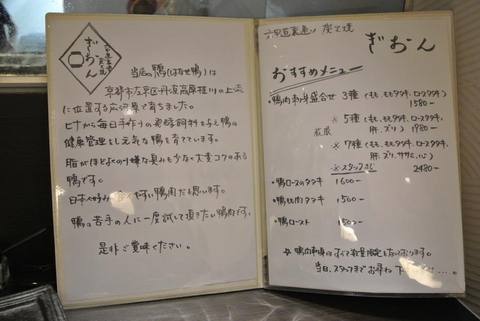 ぎおん
当店の鴨(はなせ鴨)は
京都市左京区丹波高原桂川の上流
に位置する広河原で育ちました。
ヒナから毎日手作りの発酵飼料を与え鴨の
健康管理をし元気な鴨を育てています。
脂がほどよくのり嫌な臭みも少なく大変コクのある
鴨です。
日本人好み やすい鴨肉だと思います。
鴨の苦手の人に一度試して頂きたい鴨肉です。
是非ご賞味ください。
炭火焼
ぎおん
おすすめメニュー
・鴨肉お刺身盛合せ 3種(もも、ももタタキ、ロースタタキ)
1580-
※ 5種(もも、ももタタキ、ロースタタキ、
肝、ズリ) 1980-
※ 7種(もも、ももタタキ、ロースタタキ、
肝、ズリ、ササミ、心)
2480-
・鴨ロースのタタキ 1600-
・鴨もも肉タタキ 1500-
・鴨ロースト
☆ 鴨肉料理はすべて数量限定となっております。
当日、スタッフまでお尋ね下